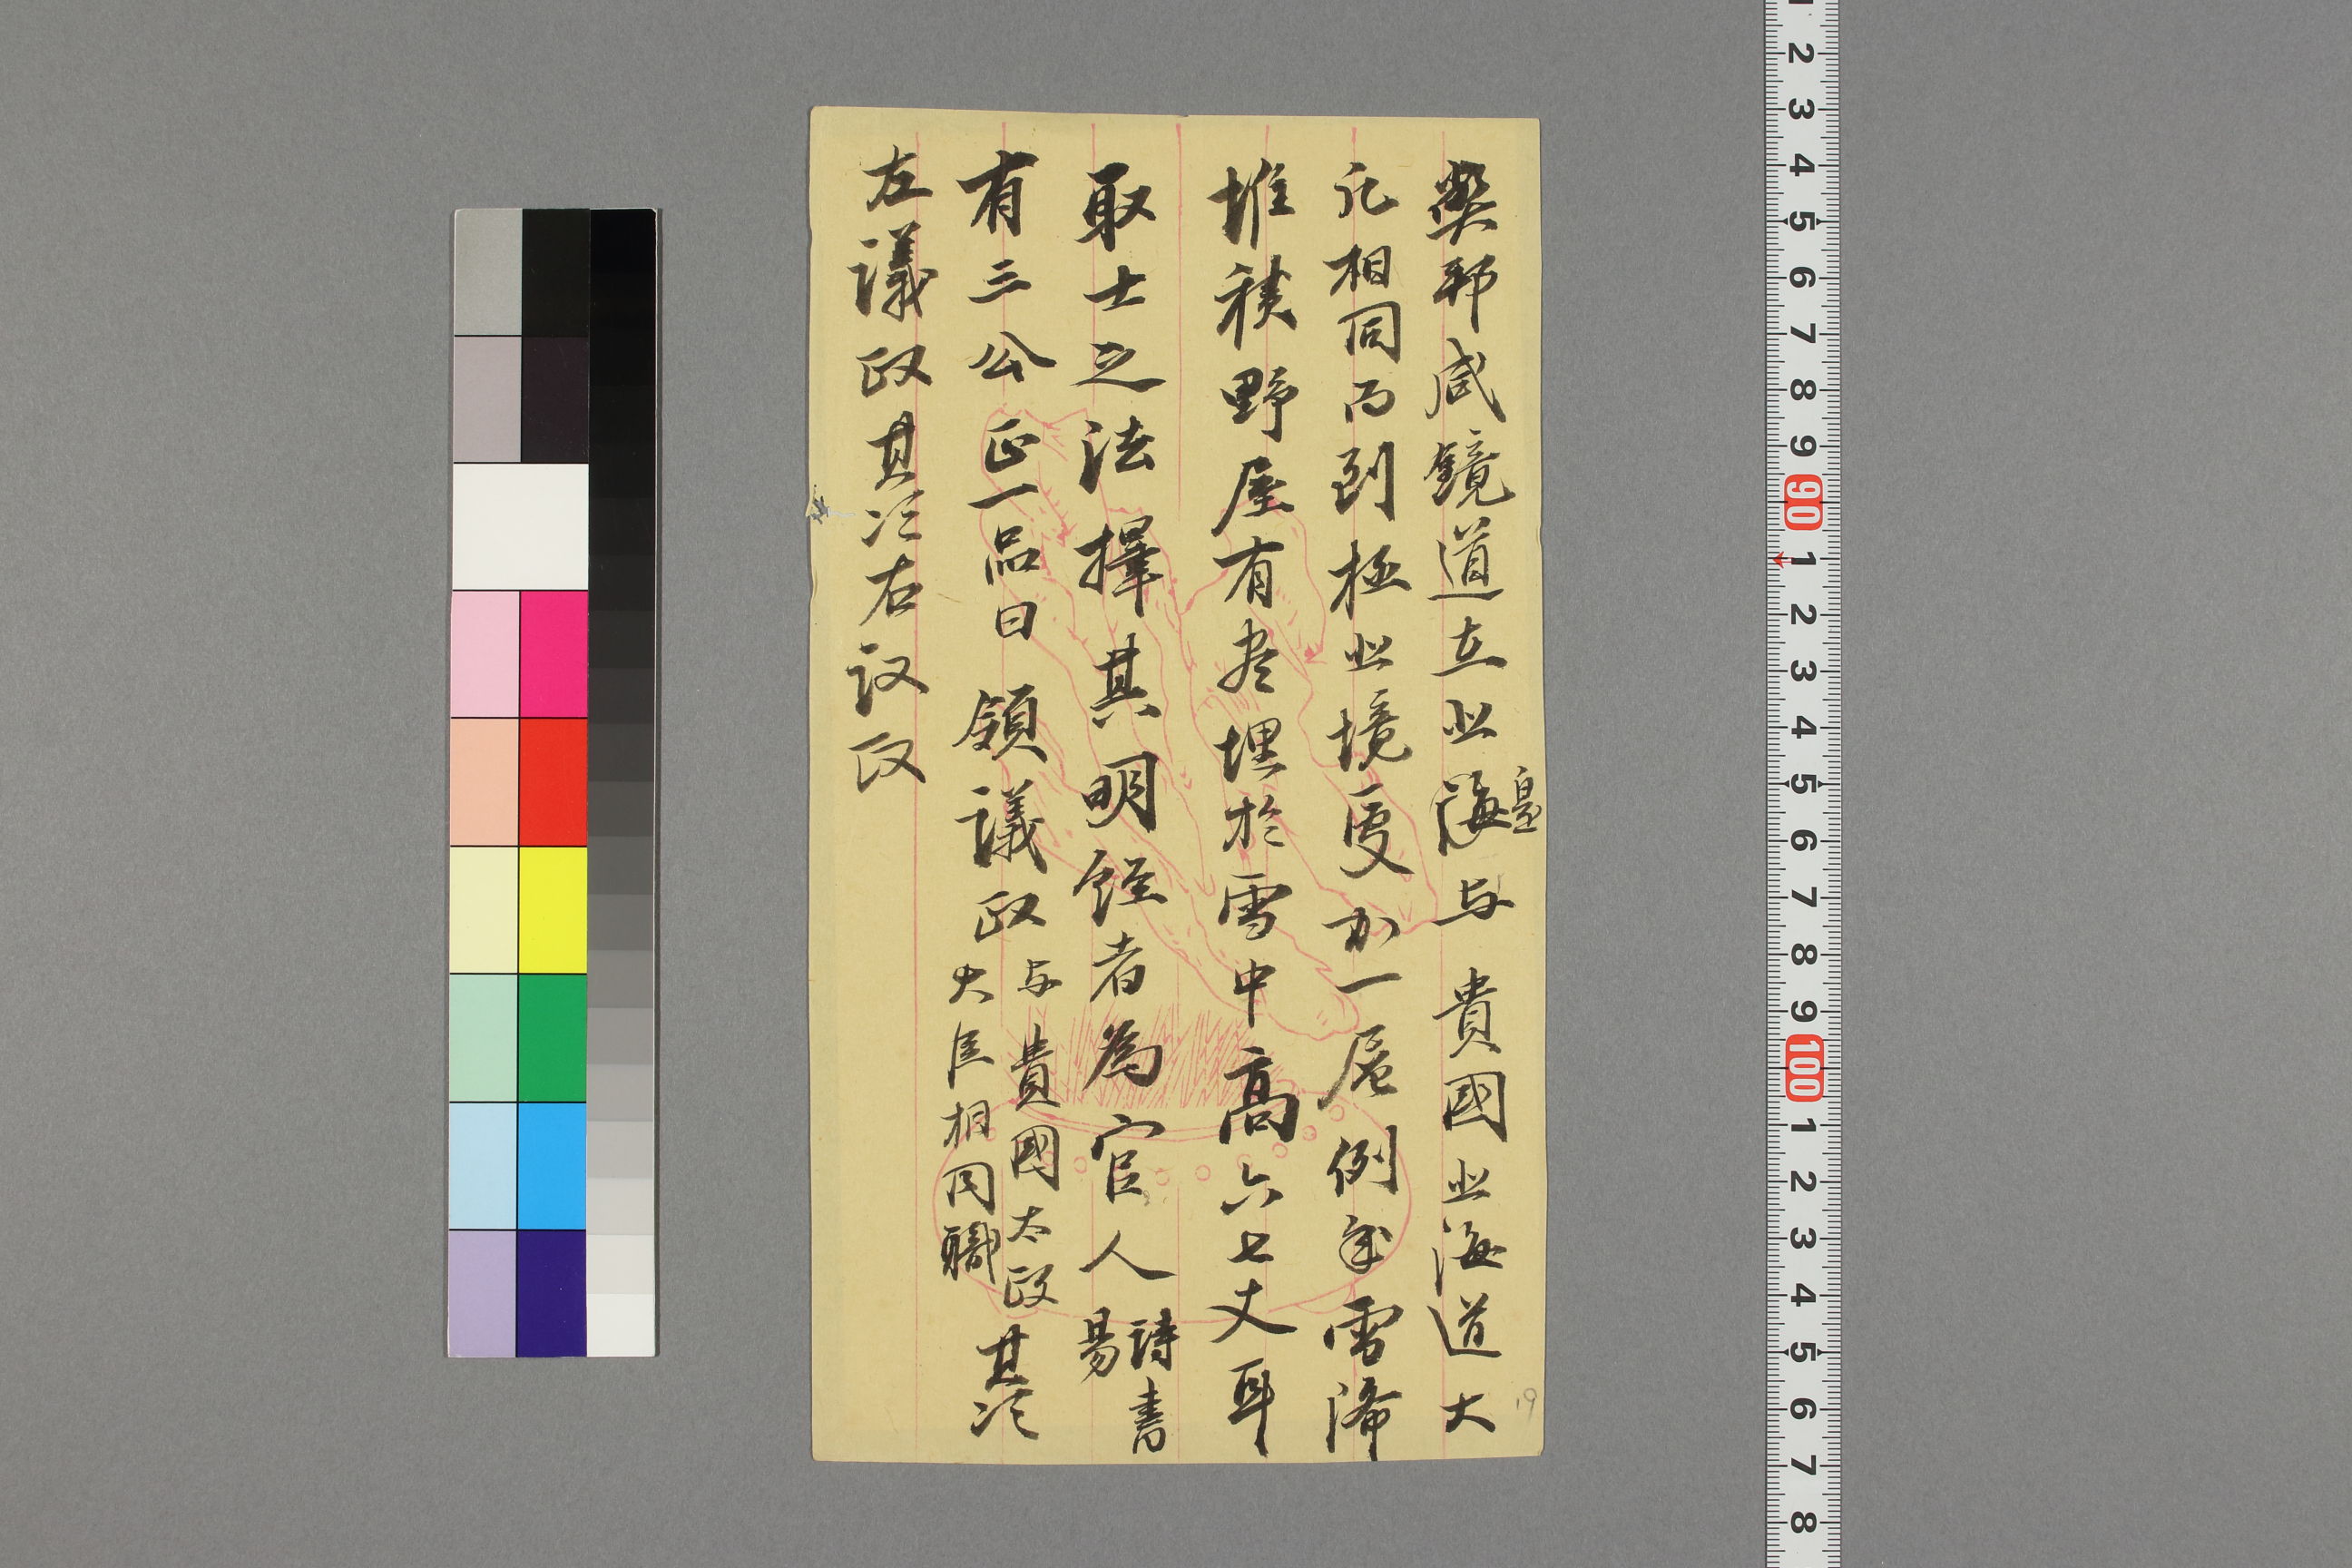 弊邦咸鏡道在北海邊与 貴國北海道大
氐相同而到極北境更加一層例年雪降
堆積野屋有尽埋於雪中高六七丈耳
取士之法擇其明經者為官人 詩書易
有三公正一品曰領議政 与貴國太政大臣相同職 其次
左議政其次右议政
19